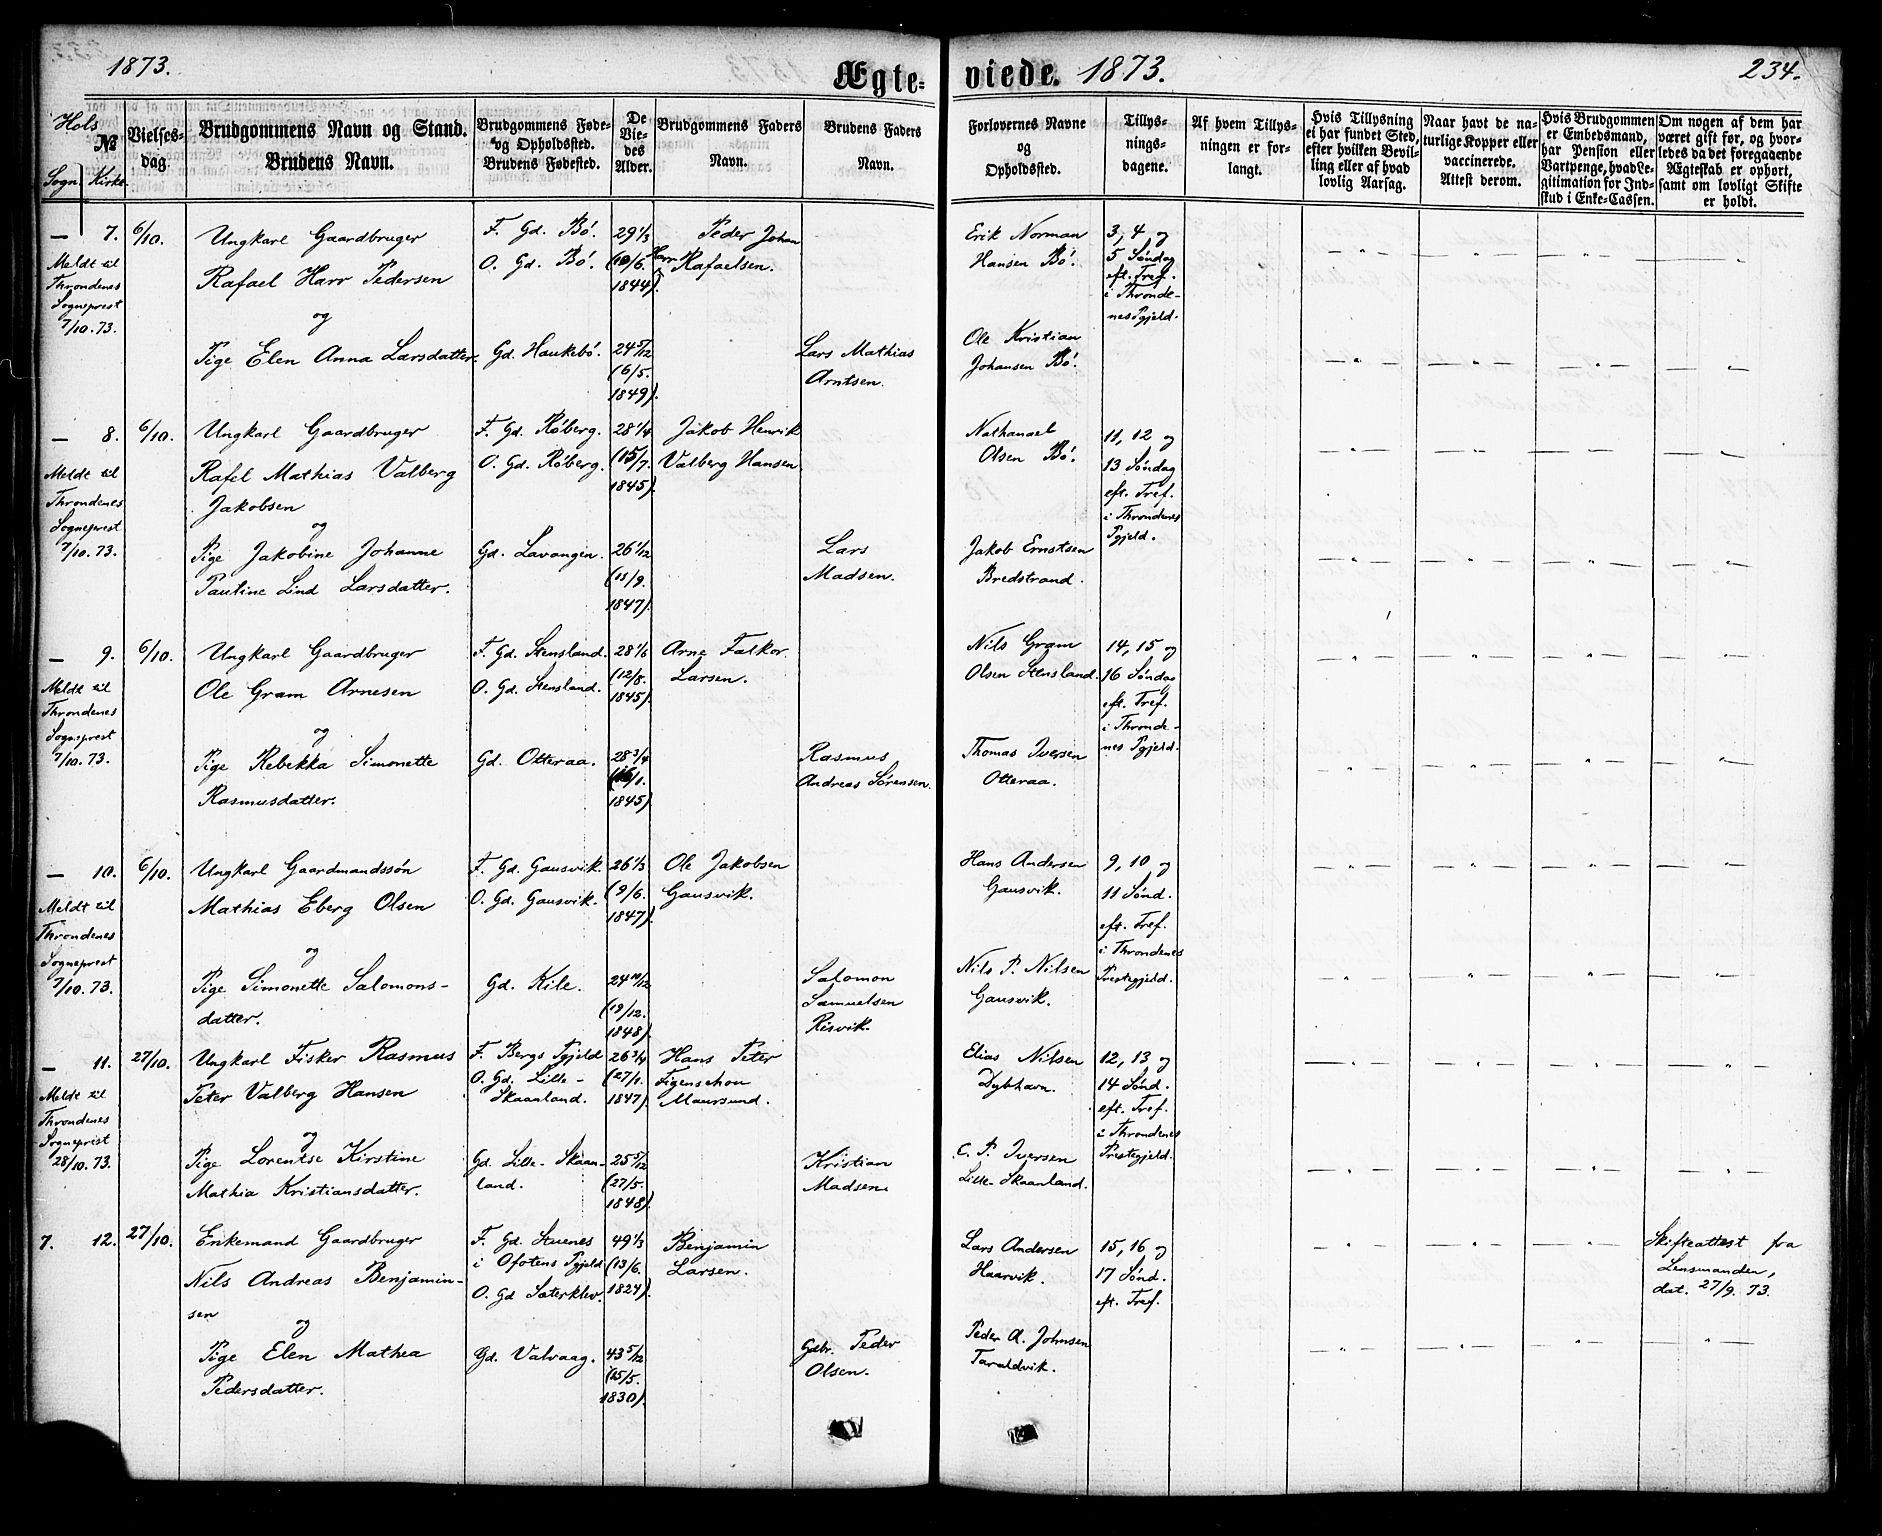 1873.
Ægte-
viede. 1873.
234.
Hols
№
Sogn Kirke
Vielses-
dag.
Brudgommens Navn og Stand.
Brudens Navn.
Brudgommens Føde-
og Opholdssted.
Brudens Fødested.
De
Vie-
des
Alder.
Brudgommens Faders
Navn.
Brudens Faders
Navn.
Forlovernes Navne
og
Opholdssted.
Tillys-
nings-
dagene.
Af hvem Tillys-
ningen er for-
langt.
Hvis Tillysning
ei har fundet Sted,
efter hvilken Bevil-
ling eller af hvad
lovlig Aarsag.
Naar havt de na-
turlige Kopper eller
vaccinerede.
Attest derom.
Hvis Brudgommen
er Embedsmand,
har Pension eller
Vartpenge, hvad Le-
gitimation for Ind-
skud i Enke-Cassen.
Om nogen af dem har
været gift før, og hvor-
ledes da det foregaaende
Ægteskab er ophørt,
samt om lovligt Skifte
er holdt.
— 7.
Meldt til
Throndenes
Sogneprest
7/10. 73.
6/10.
Ungkarl Gaardbruger
Rafael Harr Pedersen
og
Pige Elen Anna Larsdatter.
F. Gd. Bö.
O. Gd. Bö.
Gd. Haukebö.
29 1/3
(10/6.
1844).
24 5/12
(6/5.
1849).
Peder Johan
Harr Rafaelsen.
Lars Mathias
Arntsen.
Erik Norman
Hansen Bö.
Ole Kristian
Johansen Bö.
3, 4 og
5 Söndag
eft. Tref.
i Thronde-
nes Pgjeld.
— 8.
Meldt til
Throndenes
Sogneprest
7/10. 73.
6/10.
Ungkarl Gaardbruger
Rafel Mathias Valberg
Jakobsen
og
Pige Jakobine Johanne
Pauline Lind Larsdatter.
F. Gd. Röberg.
O. Gd. Röberg.
Gd. Lavangen.
28 1/4
(15/7.
1845).
26 1/12
(11/9.
1847).
Jakob Henrik
Valberg Hansen
Lars
Madsen.
Nathanael
Olsen Bö.
Jakob Ernstsen
Bredstrand.
11, 12 og
13 Söndag
eft. Tref.
i Throndenes
Pgjeld.
— 9.
Meldt til
Throndenes
Sogneprest
7/10. 73.
6/10.
Ungkarl Gaardbruger
Ole Gram Arnesen
og
Pige Rebekka Simonette
Rasmusdatter.
F. Gd. Stensland.
O. Gd. Stensland.
Gd. Otteraa.
28 1/6
(12/8.
1845).
28 3/4
(16/1.
1845).
Arne Falkor
Larsen.
Rasmus
Andreas Sørensen.
Nils Gram
Olsen Stensland.
Thomas Iversen
Otteraa.
14, 15 og
16 Söndag
eft. Tref.
i Thronde-
nes Pgjeld.
— 10.
Meldt til
Throndenes
Sogneprest
7/10. 73.
6/10.
Ungkarl Gaardmandssön
Mathias Eberg Olsen
og
Pige Simonette Salomons-
datter.
F. Gd. Gausvik.
O. Gd. Gausvik.
Gd. Kile.
26 1/3
(9/6.
1847).
24 10/12
(19/12.
1848).
Ole Jakobsen
Gausvik.
Salomon
Samuelsen
Risvik.
Hans Andersen
Gausvik.
Nils P. Nilsen
Gausvik.
9, 10 og
11 Sönd.
eft. Tref.
i Throndenes
Prestegjeld.
— 11.
Meldt til
Throndenes
Sogneprest
28/10. 73.
27/10.
Ungkarl Fisker Rasmus
Peter Valberg Hansen
og
Pige Lorentse Kirstine
Mathia Kristiansdatter.
F. Bergs Pgjeld
O. Gd. Lille-
Skaanland.
Gd. Lille-Skaan-
land.
26 3/4
(27/1.
1847).
25 5/12
(27/5.
1848).
Hans Peter
Figenschou
Maursund.
Kristian
Madsen.
Elias Nilsen
Dybhavn.
C. P. Iversen
Lille-Skaanland.
12, 13 og
14 Sönd.
eft. Tref.
i Throndenes
Prestegjeld.
7. 12.
27/10.
Enkemand Gaardbruger
Nils Andreas Benjamin-
sen
og
Pige Elen Mathea
Pedersdatter.
F. Gd. Stuenes
i Ofotens Pgjeld
O. Gd Sæterklev.
Gd. Valvaag.
49 1/3
(13/6.
1824).
43 5/12
(15/5.
1830).
Benjamin
Larsen.
Gdbr. Peder
Olsen.
Lars Andersen
Haarvik.
Peder A. Johnsen
Taraldvik.
15, 16 og
17 Sönd.
eft. Tref.
Skifteattest fra
Lensmanden,
dat. 27/9. 73.